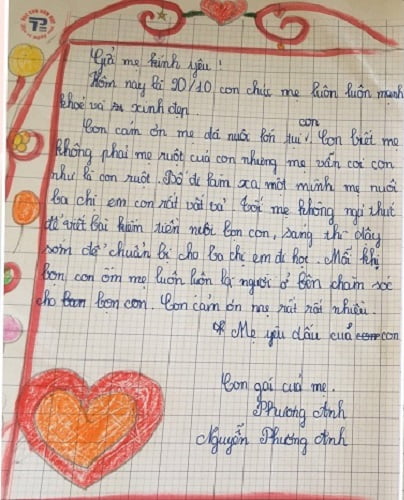 Gửi mẹ kính yêu!
Hôm nay là 20/10 con chúc mẹ luôn luôn mạnh
khỏe và xinh đẹp.
con
Con cảm ơn mẹ đã nuôi lớn. Con biết mẹ
không phải mẹ ruột của con nhưng mẹ vẫn coi con
như là con ruột. Bố đi làm xa một mình mẹ nuôi
ba chị em con rất vất vả. Tối mẹ không ngủ thức
để viết bài kiếm tiền nuôi bọn con, sáng thì dậy
sớm để chuẩn bị cho ba chị em đi học. Mỗi khi
bọn con ốm mẹ luôn luôn là người ở bên chăm sóc
cho bọn con. Con cảm ơn mẹ rất rất nhiều.
Mẹ yêu dấu của con
Con gái của mẹ.
Phương Anh
Nguyễn Phương Anh